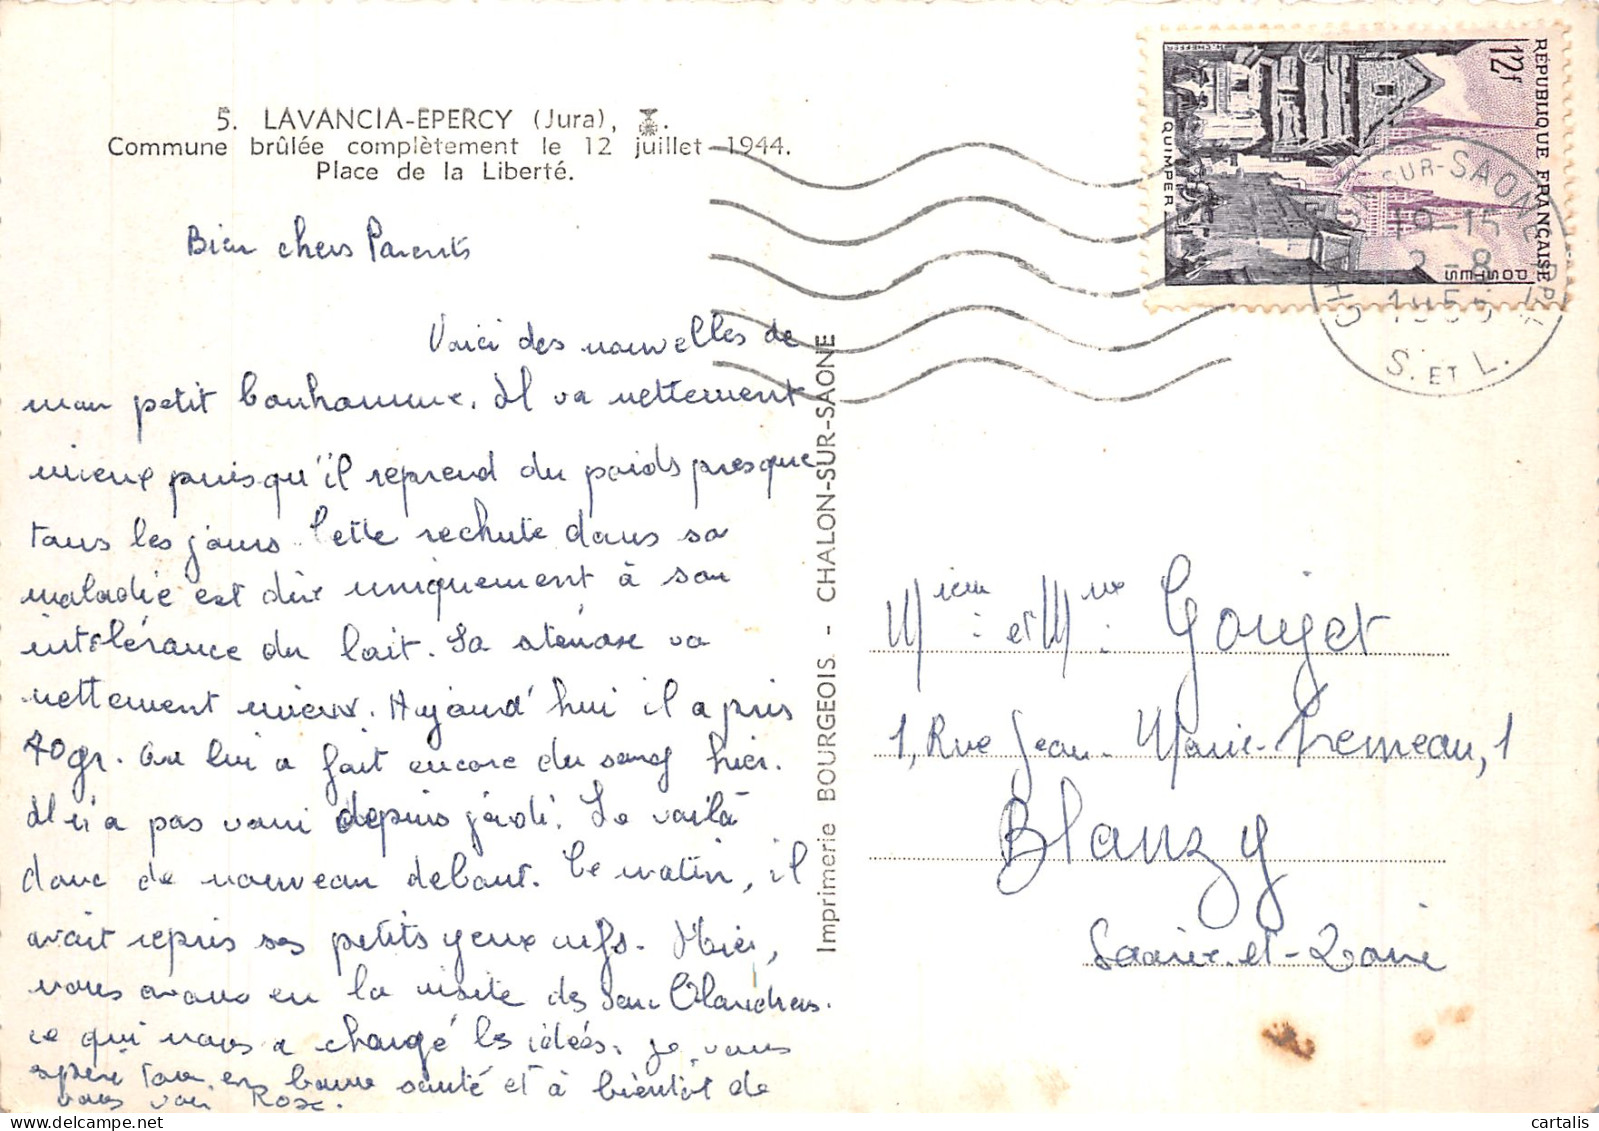 5. LAVANCIA-EPERCY (Jura),
Commune brûlée complètement le 12 juillet 1944.
Place de la Liberté.
RÉPUBLIQUE FRANÇAISE
POSTES
12f
QUIMPER
SUR-SAONE
19-15
S. ET L.
Imprimerie BOURGEOIS - CHALON-SUR-SAONE
Bien chers Parents
Voici des nouvelles de
mon petit bonhomme. Il va nettement
mieux puisqu'il reprend du poids presque
tous les jours. Cette rechute dans sa
maladie est due uniquement à son
intolérance du lait. Sa va
nettement mieux. Aujourd'hui il a pris
70gr. On lui a fait encore du sang hier.
Il n'a pas vomi depuis jeudi. Le voilà
donc de nouveau debout. Ce matin, il
avait repris ses petits yeux vifs. Hier,
nous avons eu la visite des
ce qui nous a changé les idées. Je vous
espère tous en bonne santé et à bientôt de
vous voir Rose.
Mr et Mme Goujet
1, Rue Jean-Marie-Tremeau, 1
Blanzy
Saône-et-Loire
cartalis